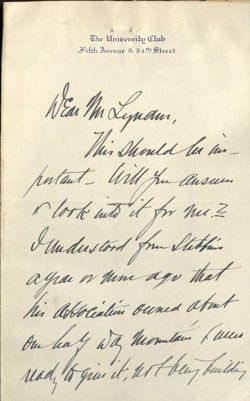 The University Club
Fifth Avenue & 54th Street
Dear Mr Lynam,
This should be im-
portant - Will you answer
& look into it for me?
I understood from Stebbins
a year or more ago that
his association owned about
one half Mountain & were
ready to give it, not being building